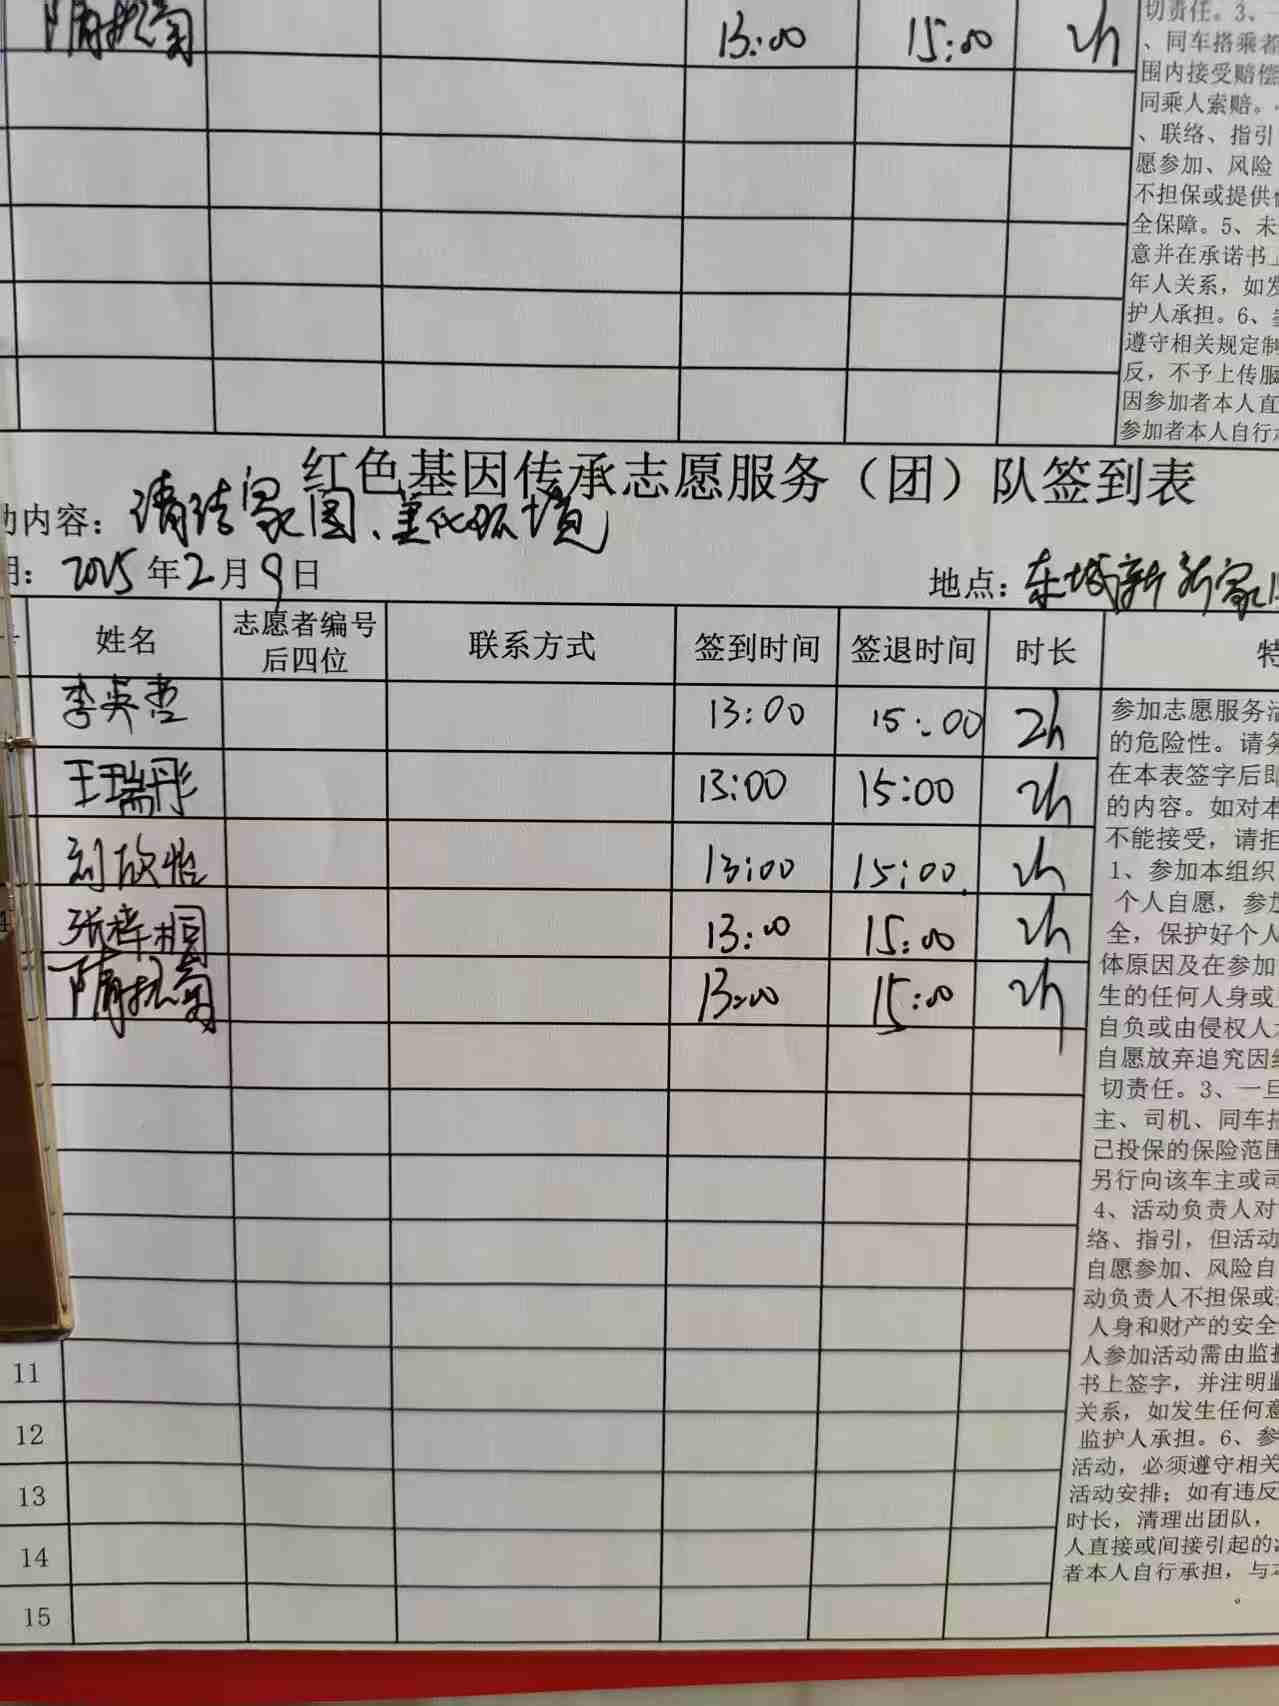 13:00 15:00 2h
切责任。3、一
、同车搭乘者
围内接受赔偿
同乘人索赔。
、联络、指引
愿参加、风险
不担保或提供
全保障。5、未
意并在承诺书
年人关系，如发
护人承担。6、
遵守相关规定制
反，不予上传服
因参加者本人直
参加者本人自行
红色基因传承志愿服务（团）队签到表
内容：清洁家园、美化环境
2025年2月9日 地点：东城新
姓名 志愿者编号后四位 联系方式 签到时间 签退时间 时长 特
李英哲 13:00 15:00 2h
王瑞彤 13:00 15:00 2h
刘欣怡 13:00 15:00 2h
张梓桐 13:00 15:00 2h
13:00 15:00 2h
参加志愿服务活
的危险性。请务
在本表签字后即
的内容。如对本
不能接受，请拒
1、参加本组织
个人自愿，参加
全，保护好个人
体原因及在参加
生的任何人身或
自负或由侵权人
自愿放弃追究因
切责任。3、一旦
主、司机、同车搭
己投保的保险范围
另行向该车主或司
4、活动负责人对
络、指引，但活动
自愿参加、风险自
动负责人不担保或
人身和财产的安全
人参加活动需由监
书上签字，并注明监
关系，如发生任何意
监护人承担。6、参
活动，必须遵守相关
活动安排；如有违反
时长，清理出团队，
人直接或间接引起的
者本人自行承担，与本
。
11
12
13
14
15